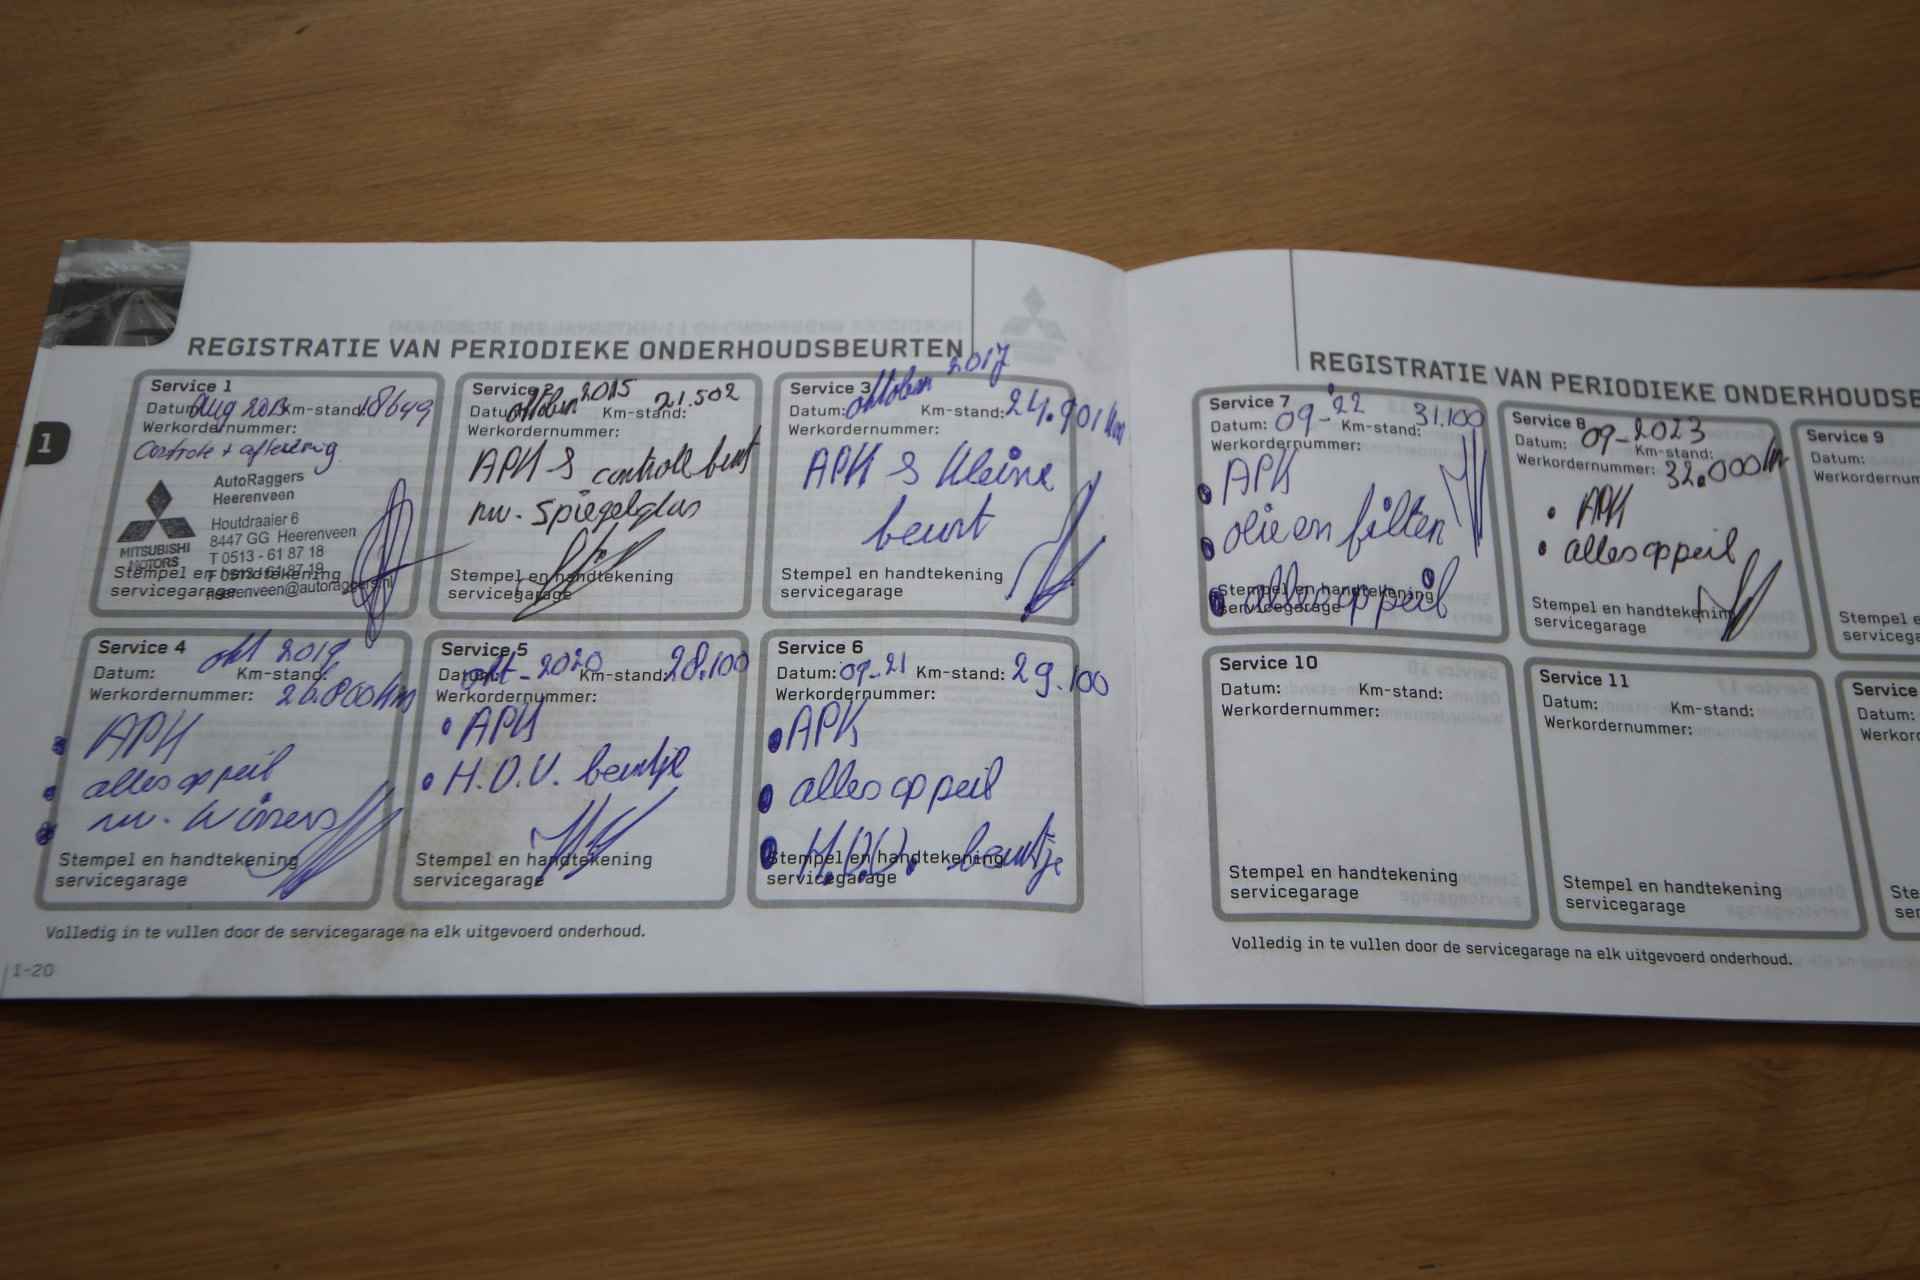 REGISTRATIE VAN PERIODIEKE ONDERHOUDSBEURTEN
1
Service 1
Datum: Aug 2013 Km-stand: 18649
Werkordernummer:
Controle + aflevering
AutoRaggers
Heerenveen
Houtdraaier 6
8447 GG Heerenveen
T 0513 - 61 87 18
F 0513 - 61 87 19
heerenveen@autoraggers.nl
MITSUBISHI
MOTORS
Stempel en handtekening
servicegarage
Service 2
Datum: oktober 2015 Km-stand: 21.502
Werkordernummer:
APK & controle beurt
nw. Spiegelglas
Stempel en handtekening
servicegarage
Service 3
Datum: oktober 2017 Km-stand: 24.901 km
Werkordernummer:
APK & Kleine
beurt
Stempel en handtekening
servicegarage
Service 4
Datum: okt 2019 Km-stand:
Werkordernummer: 26.800 km
APK
alles op peil
nw. Wissers
Stempel en handtekening
servicegarage
Service 5
Datum: okt - 2020 Km-stand: 28.100
Werkordernummer:
• APK
• H.O.U. beurtje
Stempel en handtekening
servicegarage
Service 6
Datum: 09-21 Km-stand: 29.100
Werkordernummer:
• APK
• alles op peil
• beurtje
Stempel en handtekening
servicegarage
Volledig in te vullen door de servicegarage na elk uitgevoerd onderhoud.
1-20
REGISTRATIE VAN PERIODIEKE ONDERHOUDSB
Service 7
Datum: 09-'22 Km-stand: 31.100
Werkordernummer:
• APK
• olie en filter
• alles op peil
Stempel en handtekening
servicegarage
Service 8
Datum: 09-2023 Km-stand:
Werkordernummer: 32.000 km
• APK
• alles op peil
Stempel en handtekening
servicegarage
Service 9
Datum:
Werkordernum
Stempel e
servicega
Service 10
Datum: Km-stand:
Werkordernummer:
Stempel en handtekening
servicegarage
Service 11
Datum: Km-stand:
Werkordernummer:
Stempel en handtekening
servicegarage
Service
Datum:
Werkor
Ste
ser
Volledig in te vullen door de servicegarage na elk uitgevoerd onderhoud.